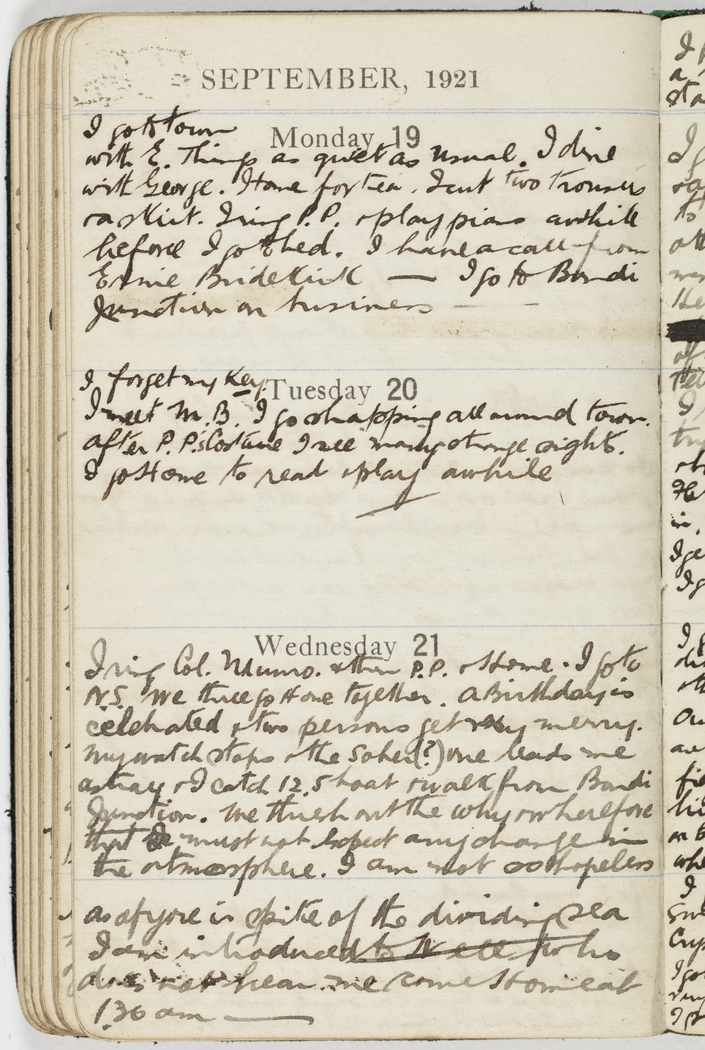 SEPTEMBER, 1921
I go to town
Monday 19
with E. Things as quiet as usual. I dine
with George. Home for tea. I cut two trousers
& a skirt. I ring P.P. & play piano awhile
before I go to bed. I have a call from
Ernie Bride — I go to Bondi
Junction on business —
I forget my Key.
Tuesday 20
I meet M.B. I go shopping all around town.
after P.P.s Costume I see many strange sights.
I go Home to read & play awhile
Wednesday 21
I ring Col. Munro. & then P.P. & Home. I go to
N.S. We three go Home together. A Birthday is
celebrated & two persons get very merry.
My watch stops & the Sober (?) one leads me
astray & I catch 12.5 boat & walk from Bondi
Junction. We thresh out the why or wherefore
that must not expect any change in
the atmosphere. I am not so hopeless
as of yore in spite of the dividing sea
I am introduced to who
does not hear me come Home at
1.30 am —